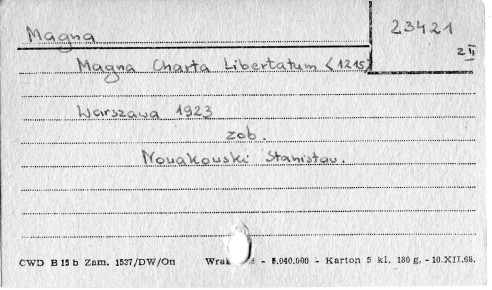 Magna
23421
2 II
Magna Charta Libertatum <1215>
Warszawa 1923
zob.
Nowakowski Stanisław.
CWD B 15 b Zam. 1537/DW/On - 5.040.000 - Karton 5 kl. 180 g. - 10.XII.68.